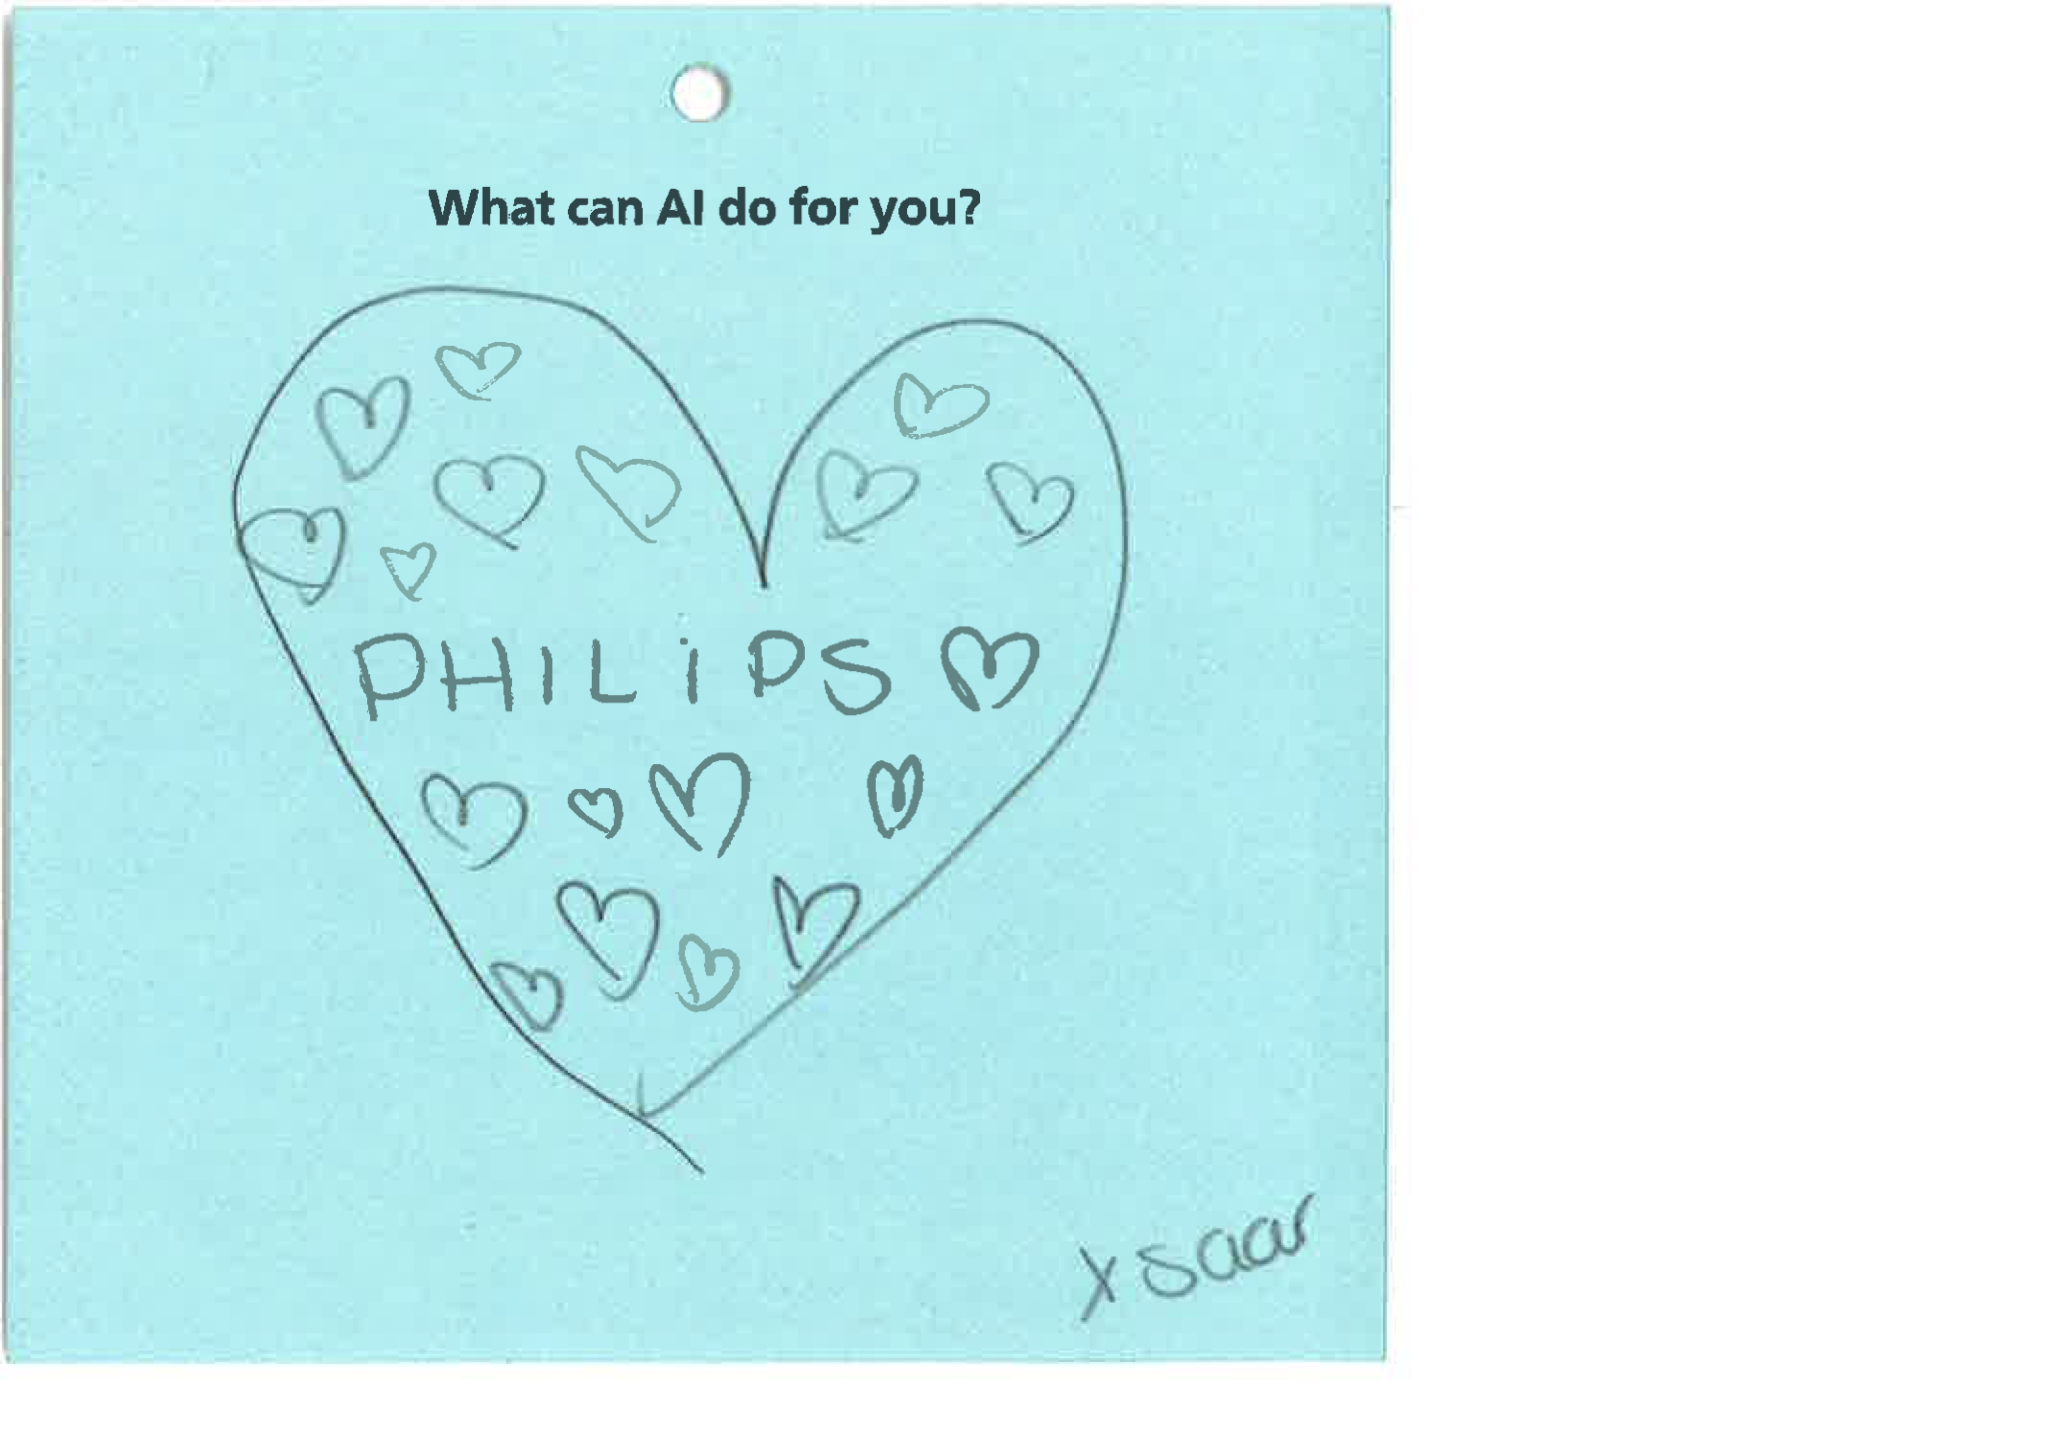 What can AI do for you?
PHILiPS
x saar